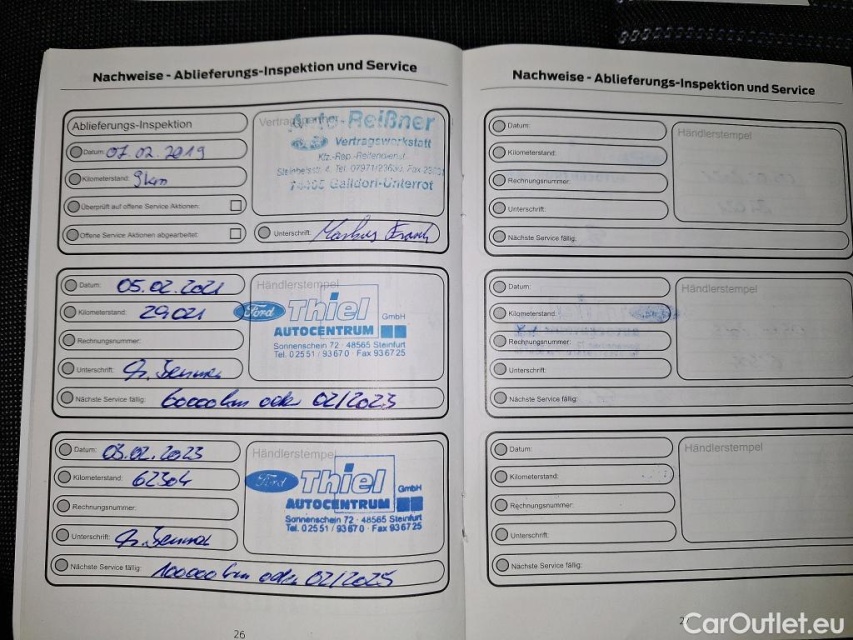 Nachweise - Ablieferungs-Inspektion und Service
Ablieferungs-Inspektion
Datum: 07.02.2019
Kilometerstand: 9km
Überprüft auf offene Service-Aktionen:
Offene Service Aktionen abgearbeitet:
Auto-Reißner
Vertragswerkstatt
Kfz.-Rep.-Reifenservice
74405 Gaildorf-Unterrot
Unterschrift:
Datum: 05.02.2021
Kilometerstand: 29021
Rechnungsnummer:
Unterschrift:
Nächste Service fällig: 60000km oder 02/2023
Händlerstempel
Ford Thiel GmbH
AUTOCENTRUM
Sonnenschein 72 · 48565 Steinfurt
Tel. 02551/93670 · Fax 936725
Datum: 03.02.2023
Kilometerstand: 62304
Rechnungsnummer:
Unterschrift:
Nächste Service fällig: 100000km oder 02/2025
Händlerstempel
Ford Thiel GmbH
AUTOCENTRUM
Sonnenschein 72 · 48565 Steinfurt
Tel. 02551/93670 · Fax 936725
26
Nachweise - Ablieferungs-Inspektion und Service
Datum:
Kilometerstand:
Rechnungsnummer:
Unterschrift:
Nächste Service fällig:
Händlerstempel
Datum:
Kilometerstand:
Rechnungsnummer:
Unterschrift:
Nächste Service fällig:
Händlerstempel
Datum:
Kilometerstand:
Rechnungsnummer:
Unterschrift:
Nächste Service fällig:
Händlerstempel
CarOutlet.eu